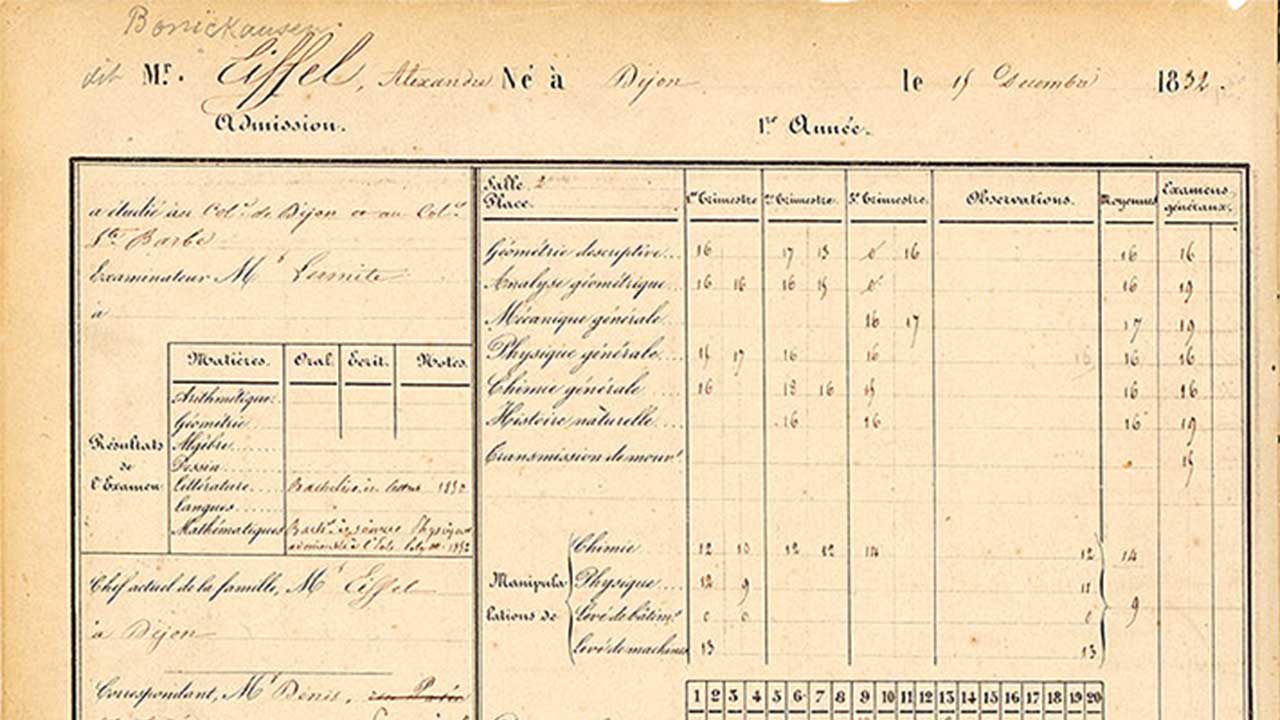 Bonickausen
dit Mr. Eiffel, Alexandre Né à Dijon le 15 Decembre 1832.
Admission.
1re Année.
a étudié au Col. de Dijon et au Col.
Ste Barbe
Examinateur Mr
à
Résultats de l'Examen
Matières. Oral. Ecrit. Notes.
Arithmétique.
Géométrie
Algèbre
Dessin
Littérature 
Langues
Mathématiques
Chef actuel de la famille, Mr Eiffel
à Dijon
Correspondant, Mr Denis,
Salle. 2
Place.
1er Trimestre 2e Trimestre. 3e Trimestre. Observations. Moyennes Examens généraux.
Géométrie descriptive 16 17 13 0 16 16 16
Analyse géométrique 16 16 16 15 0 16 19
Mécanique générale 16 17 17 19
Physique générale 15 17 16 16 16 16 16
Chimie générale 16 18 16 15 16 16
Histoire naturelle 16 16 16 19
Transmission de mouvt 15
Manipulations de
Chimie 12 10 12 12 14 12 14
Physique 12 9 11
Levé de bâtimt 0 0 0 9
Levé de machines 13 13
1 2 3 4 5 6 7 8 9 10 11 12 13 14 15 16 17 18 19 20